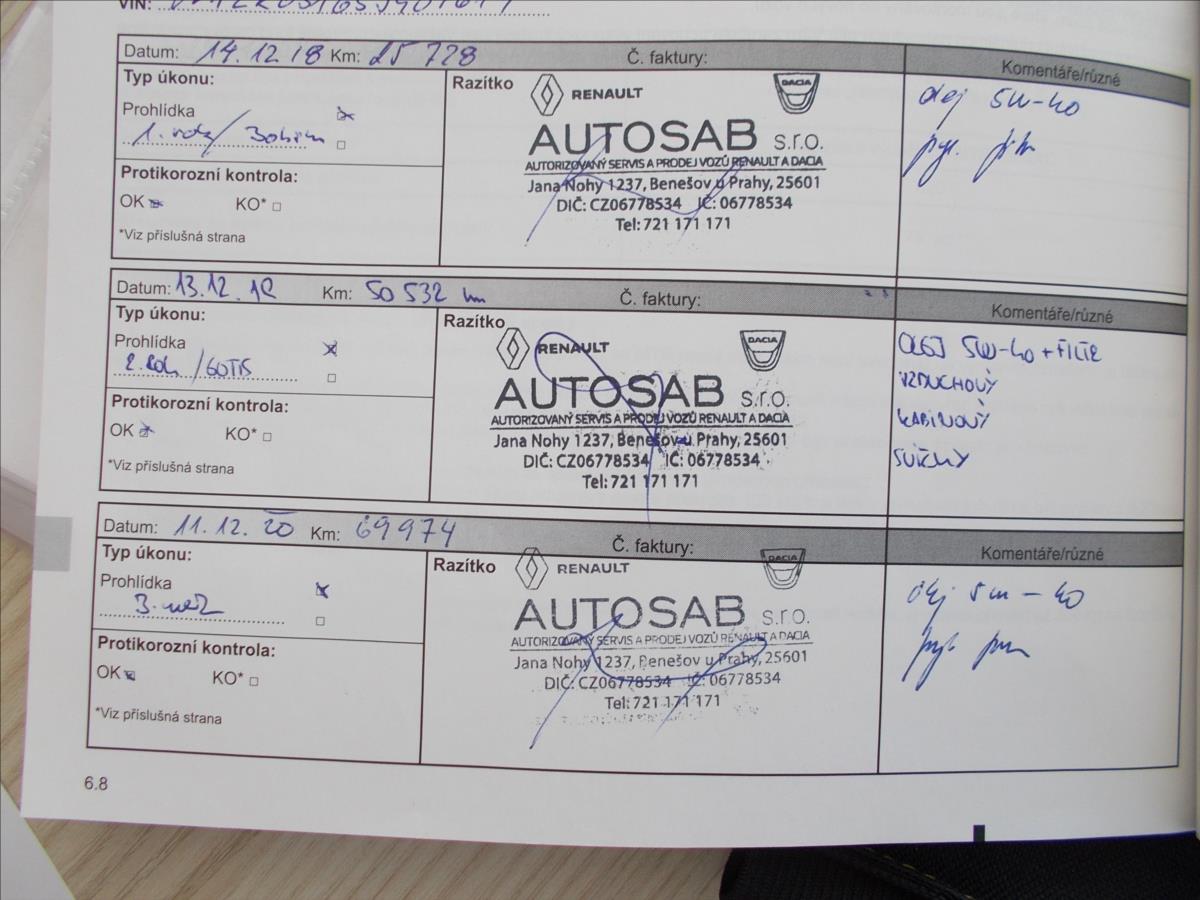 VIN:
Datum: 14.12.18 Km: 25 728 Č. faktury: Komentáře/různé
Typ úkonu:
Prohlídka
1. rok/30tikm
Protikorozní kontrola:
OK KO*
*Viz příslušná strana
Razítko
RENAULT DACIA
AUTOSAB s.r.o.
AUTORIZOVANÝ SERVIS A PRODEJ VOZŮ RENAULT A DACIA
Jana Nohy 1237, Benešov u Prahy, 25601
DIČ: CZ06778534 IČ: 06778534
Tel: 721 171 171
olej 5W-40
Datum: 13.12.19 Km: 50 532 km Č. faktury: Komentáře/různé
Typ úkonu:
Prohlídka
2. rok /60TIS
Protikorozní kontrola:
OK KO*
*Viz příslušná strana
Razítko
RENAULT DACIA
AUTOSAB s.r.o.
AUTORIZOVANÝ SERVIS A PRODEJ VOZŮ RENAULT A DACIA
Jana Nohy 1237, Benešov u Prahy, 25601
DIČ: CZ06778534 IČ: 06778534
Tel: 721 171 171
OLEJ 5W-40 + FILTR
VZDUCHOVÝ
KABINOVÝ
SVÍČKY
Datum: 11.12.20 Km: 69974 Č. faktury: Komentáře/různé
Typ úkonu:
Prohlídka
3.
Protikorozní kontrola:
OK KO*
*Viz příslušná strana
Razítko
RENAULT DACIA
AUTOSAB s.r.o.
AUTORIZOVANÝ SERVIS A PRODEJ VOZŮ RENAULT A DACIA
Jana Nohy 1237, Benešov u Prahy, 25601
DIČ: CZ06778534 IČ: 06778534
Tel: 721 171 171
olej 5W-40
6.8